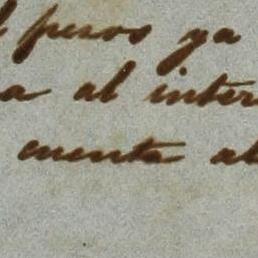 pesos ya
a al inter
cuenta al